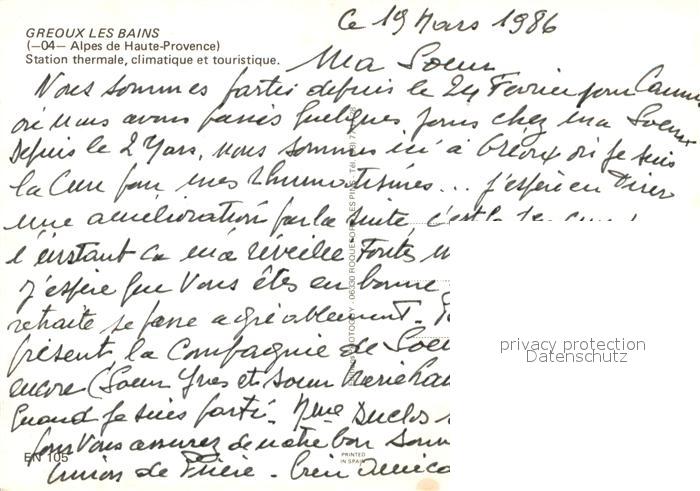 GREOUX LES BAINS
(—04— Alpes de Haute-Provence)
Station thermale, climatique et touristique.
Ce 19 Mars 1986
Ma Soeur
Nous sommes partis depuis le 24 Fevrier pour Cannes
où nous avons passés quelques jours chez ma Soeur
Depuis le 2 Mars, nous sommes ici à Gréoux où je suis
la Cure pour mes rhumatismes... j'espère en tirer
une amélioration par la suite, c'est la
l'instant ca m'a réveillé toutes
J'espère que Vous êtes en bonne
retraite se passe agréablement.
présent, la Compagnie de Soeu
encore (Soeur Yves et soeur Marie
quand je suis parti. Mme Duclos
pour Vous assurez de notre bon Souv
Union de Prière. bien Amica
EN 105
PRINTED
IN SPAIN
privacy protection
Datenschutz